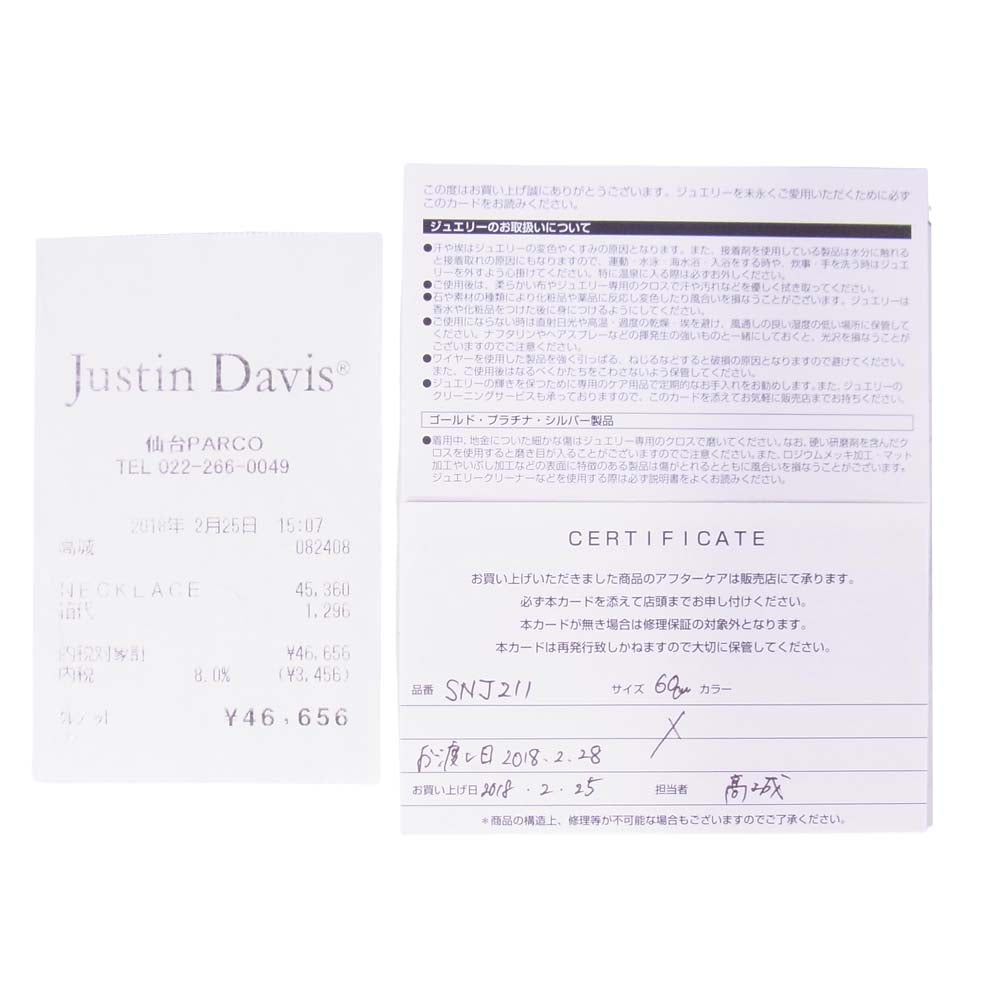 Justin Davis®
仙台PARCO
TEL 022-266-0049
2018年 2月25日 15:07
高城 082408
NECKLACE 45,360
箱代 1,296
内税対象計 ¥46,656
内税 8.0% (¥3,456)
¥46,656
この度はお買い上げ誠にありがとうございます。ジュエリーを末永くご愛用いただくために必ず
このカードをお読みください。
ジュエリーのお取扱いについて
●汗や埃はジュエリーの変色やくすみの原因となります。また、接着剤を使用している製品は水分に触れる
と接着取れの原因にもなりますので、運動・水泳・海水浴・入浴をする時や、炊事・手を洗う時はジュエ
リーを外すよう心掛けてください。特に温泉に入る際は必ずお外しください。
●ご使用後は、柔らかい布やジュエリー専用のクロスで汗や汚れなどを優しく拭き取ってください。
●石や素材の種類により化粧品や薬品に反応し変色したり風合いを損なうことがございます。ジュエリーは
香水や化粧品をつけた後に身につけるようにしてください。
●ご使用にならない時は直射日光や高温・過度の乾燥・埃を避け、風通しの良い湿度の低い場所に保管して
ください。ナフタリンやヘアスプレーなどの揮発生の強いものと一緒にしておくと、光沢を損なうことが
ございますのでご注意ください。
●ワイヤーを使用した製品を強く引っぱる、ねじるなどすると破損の原因となりますので避けてください。
また、ご使用後はなるべくかたちをこわさないよう保管してください。
●ジュエリーの輝きを保つために専用のケア用品で定期的なお手入れをお勧めします。また、ジュエリーの
クリーニングサービスも承っておりますので、このカードを添えてお気軽に販売店までお持ちください。
ゴールド・プラチナ・シルバー製品
●着用中、地金についた細かな傷はジュエリー専用のクロスで磨いてください。なお、硬い研磨剤を含んだク
ロスを使用すると磨き目が入ることがございますのでご注意ください。また、ロジウムメッキ加工・マット
加工やいぶし加工などの表面に特徴のある製品は傷がとれるとともに風合いを損なうことがございます。
ジュエリークリーナーなどを使用する際は必ず説明書をよくお読みください。
CERTIFICATE
お買い上げいただきました商品のアフターケアは販売店にて承ります。
必ず本カードを添えて店頭までお申し付けください。
本カードが無き場合は修理保証の対象外となります。
本カードは再発行致しかねますので大切に保管してください。
品番 SNJ211 サイズ 60cm カラー
お渡し日 2018.2.28
お買い上げ日 2018.2.25 担当者 高城
*商品の構造上、修理等が不可能な場合もございますのでご了承ください。